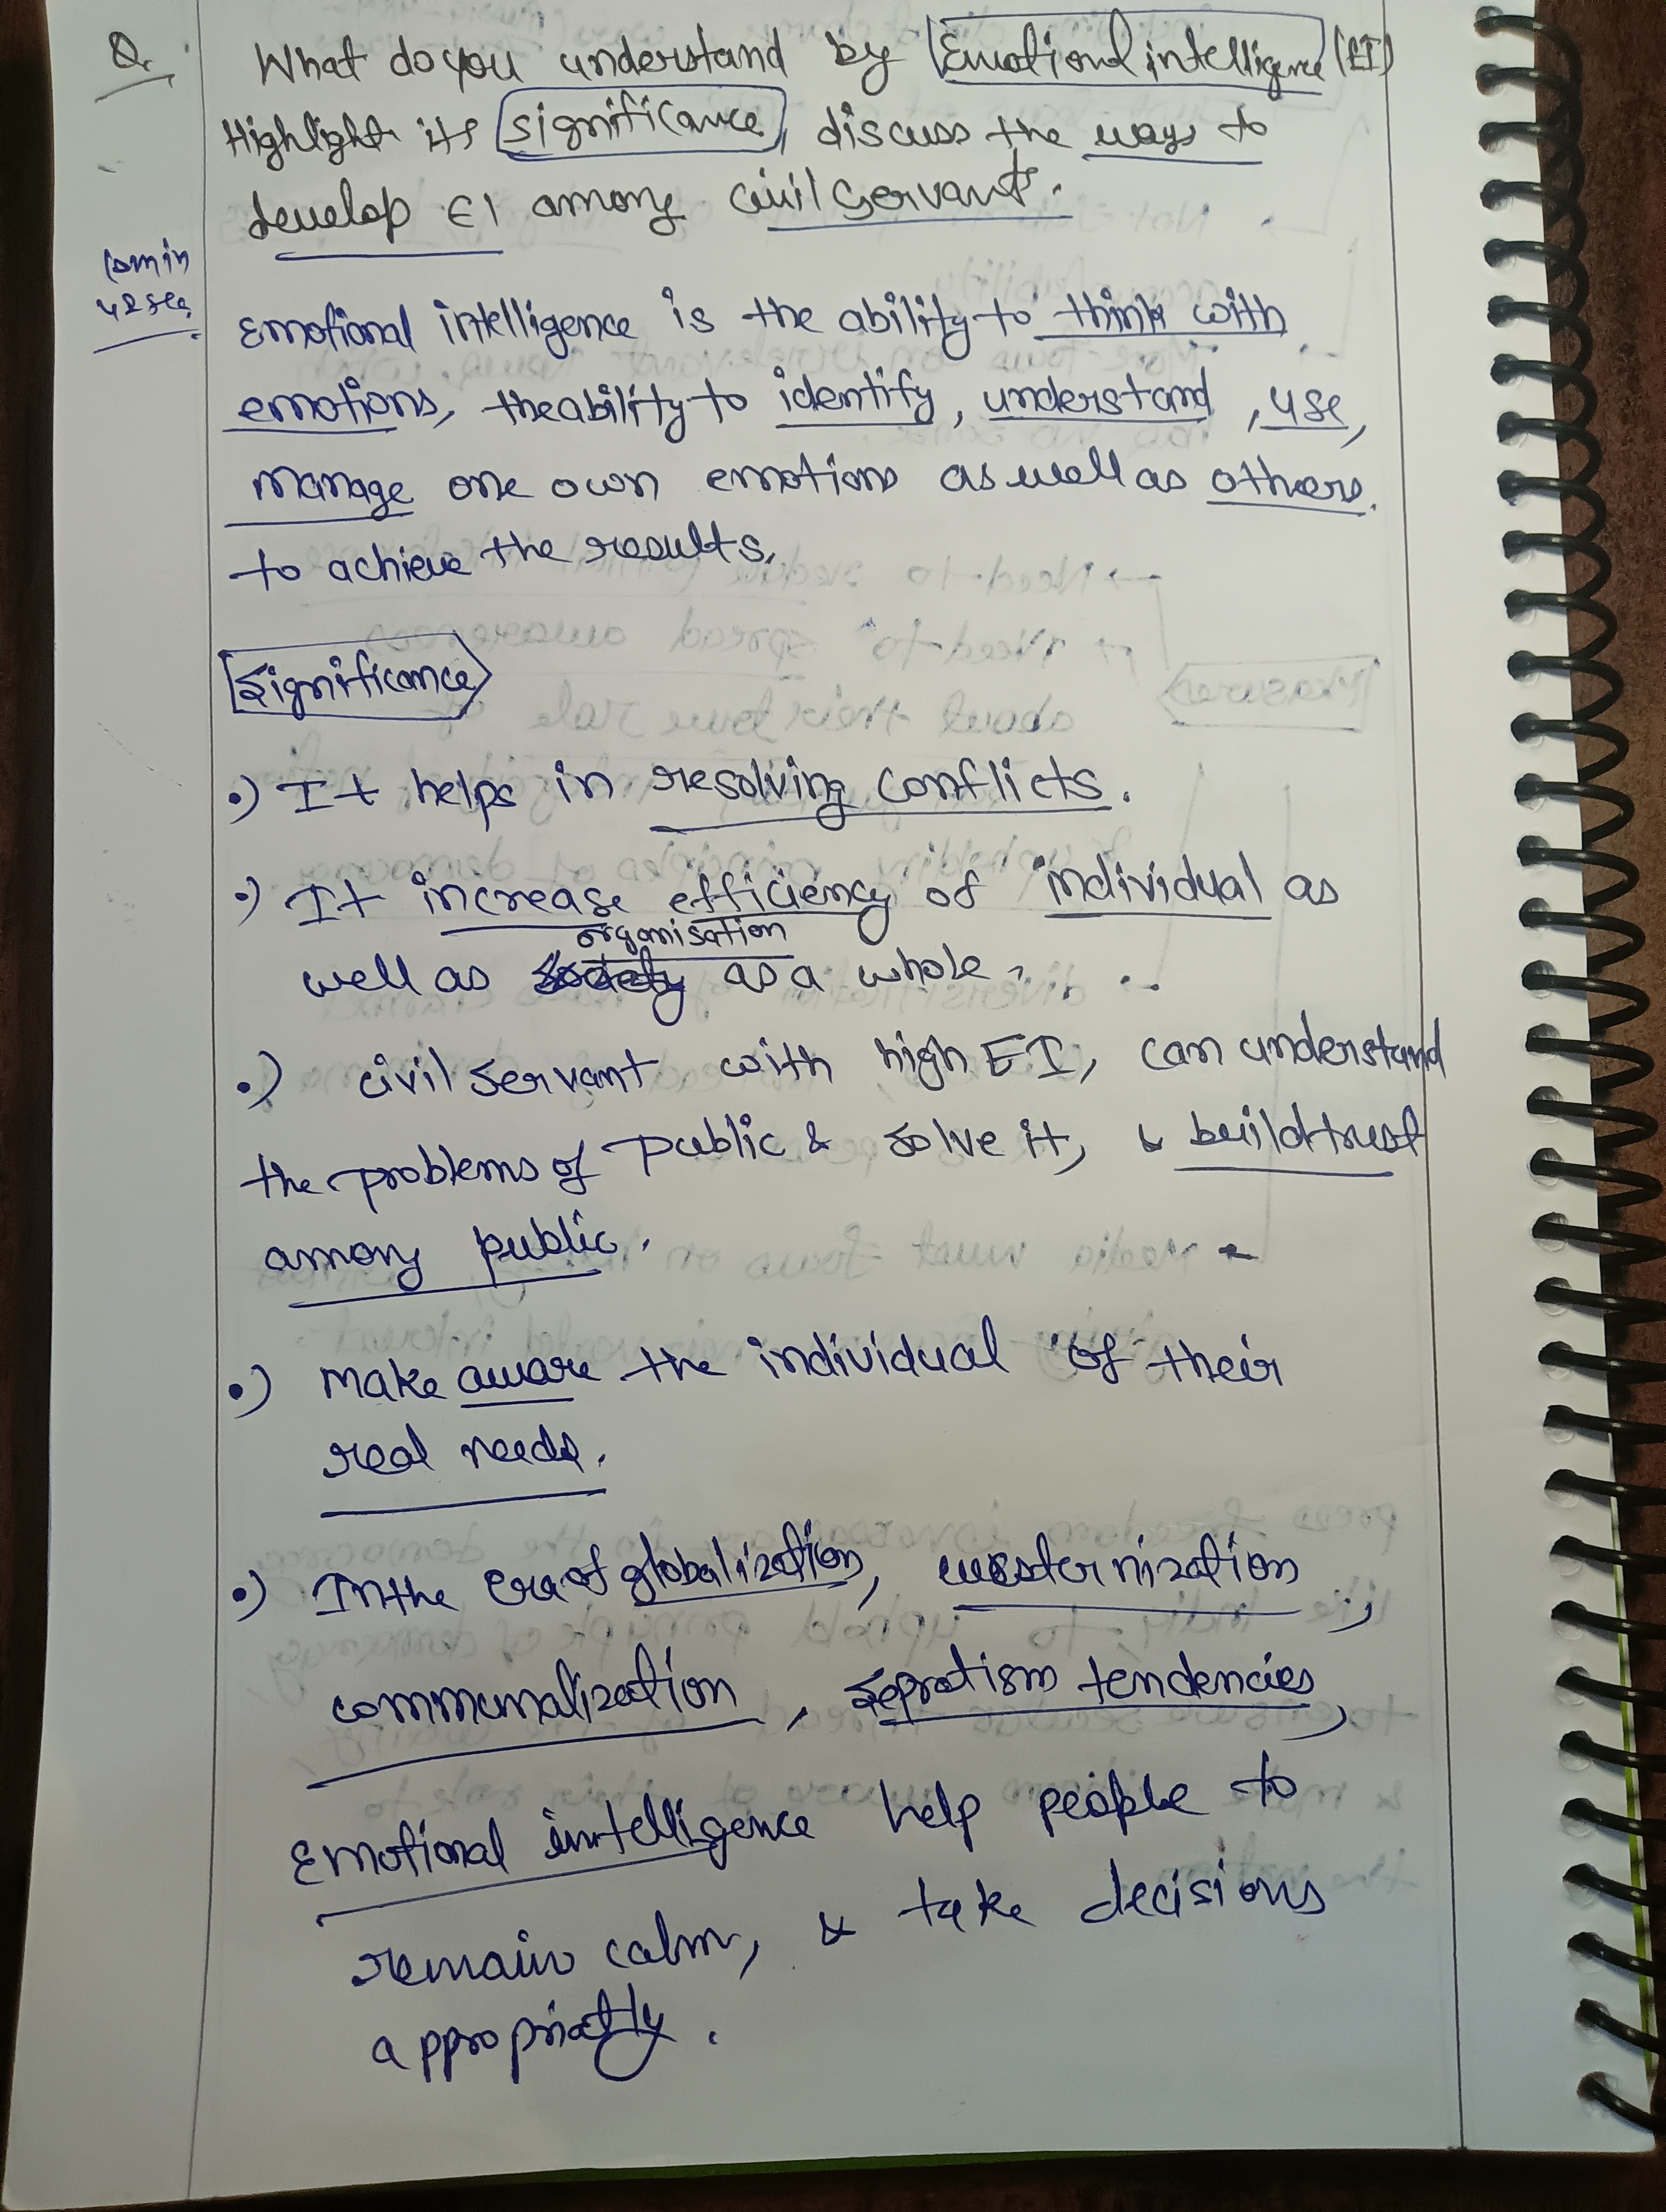 Q. What do you understand by Emotional intelligence (EI)
Highlight its significance, discuss the ways to
develop EI among civil servants.
42 sec
Emotional intelligence is the ability to think with
emotions, the ability to identify, understand, use,
manage one own emotions as well as others.
to achieve the results.
Significance
•) It helps in resolving conflicts.
•) It increase efficiency of individual as
organisation
well as society as a whole.
•) civil servant with high EI, can understand
the problems of public & solve it, & build trust
among public.
•) make aware the individual of their
real needs.
•) In the era of globalization, westernization,
communalization, sepratism tendencies,
Emotional intelligence help people to
remain calm, & take decisions
appropriatly.